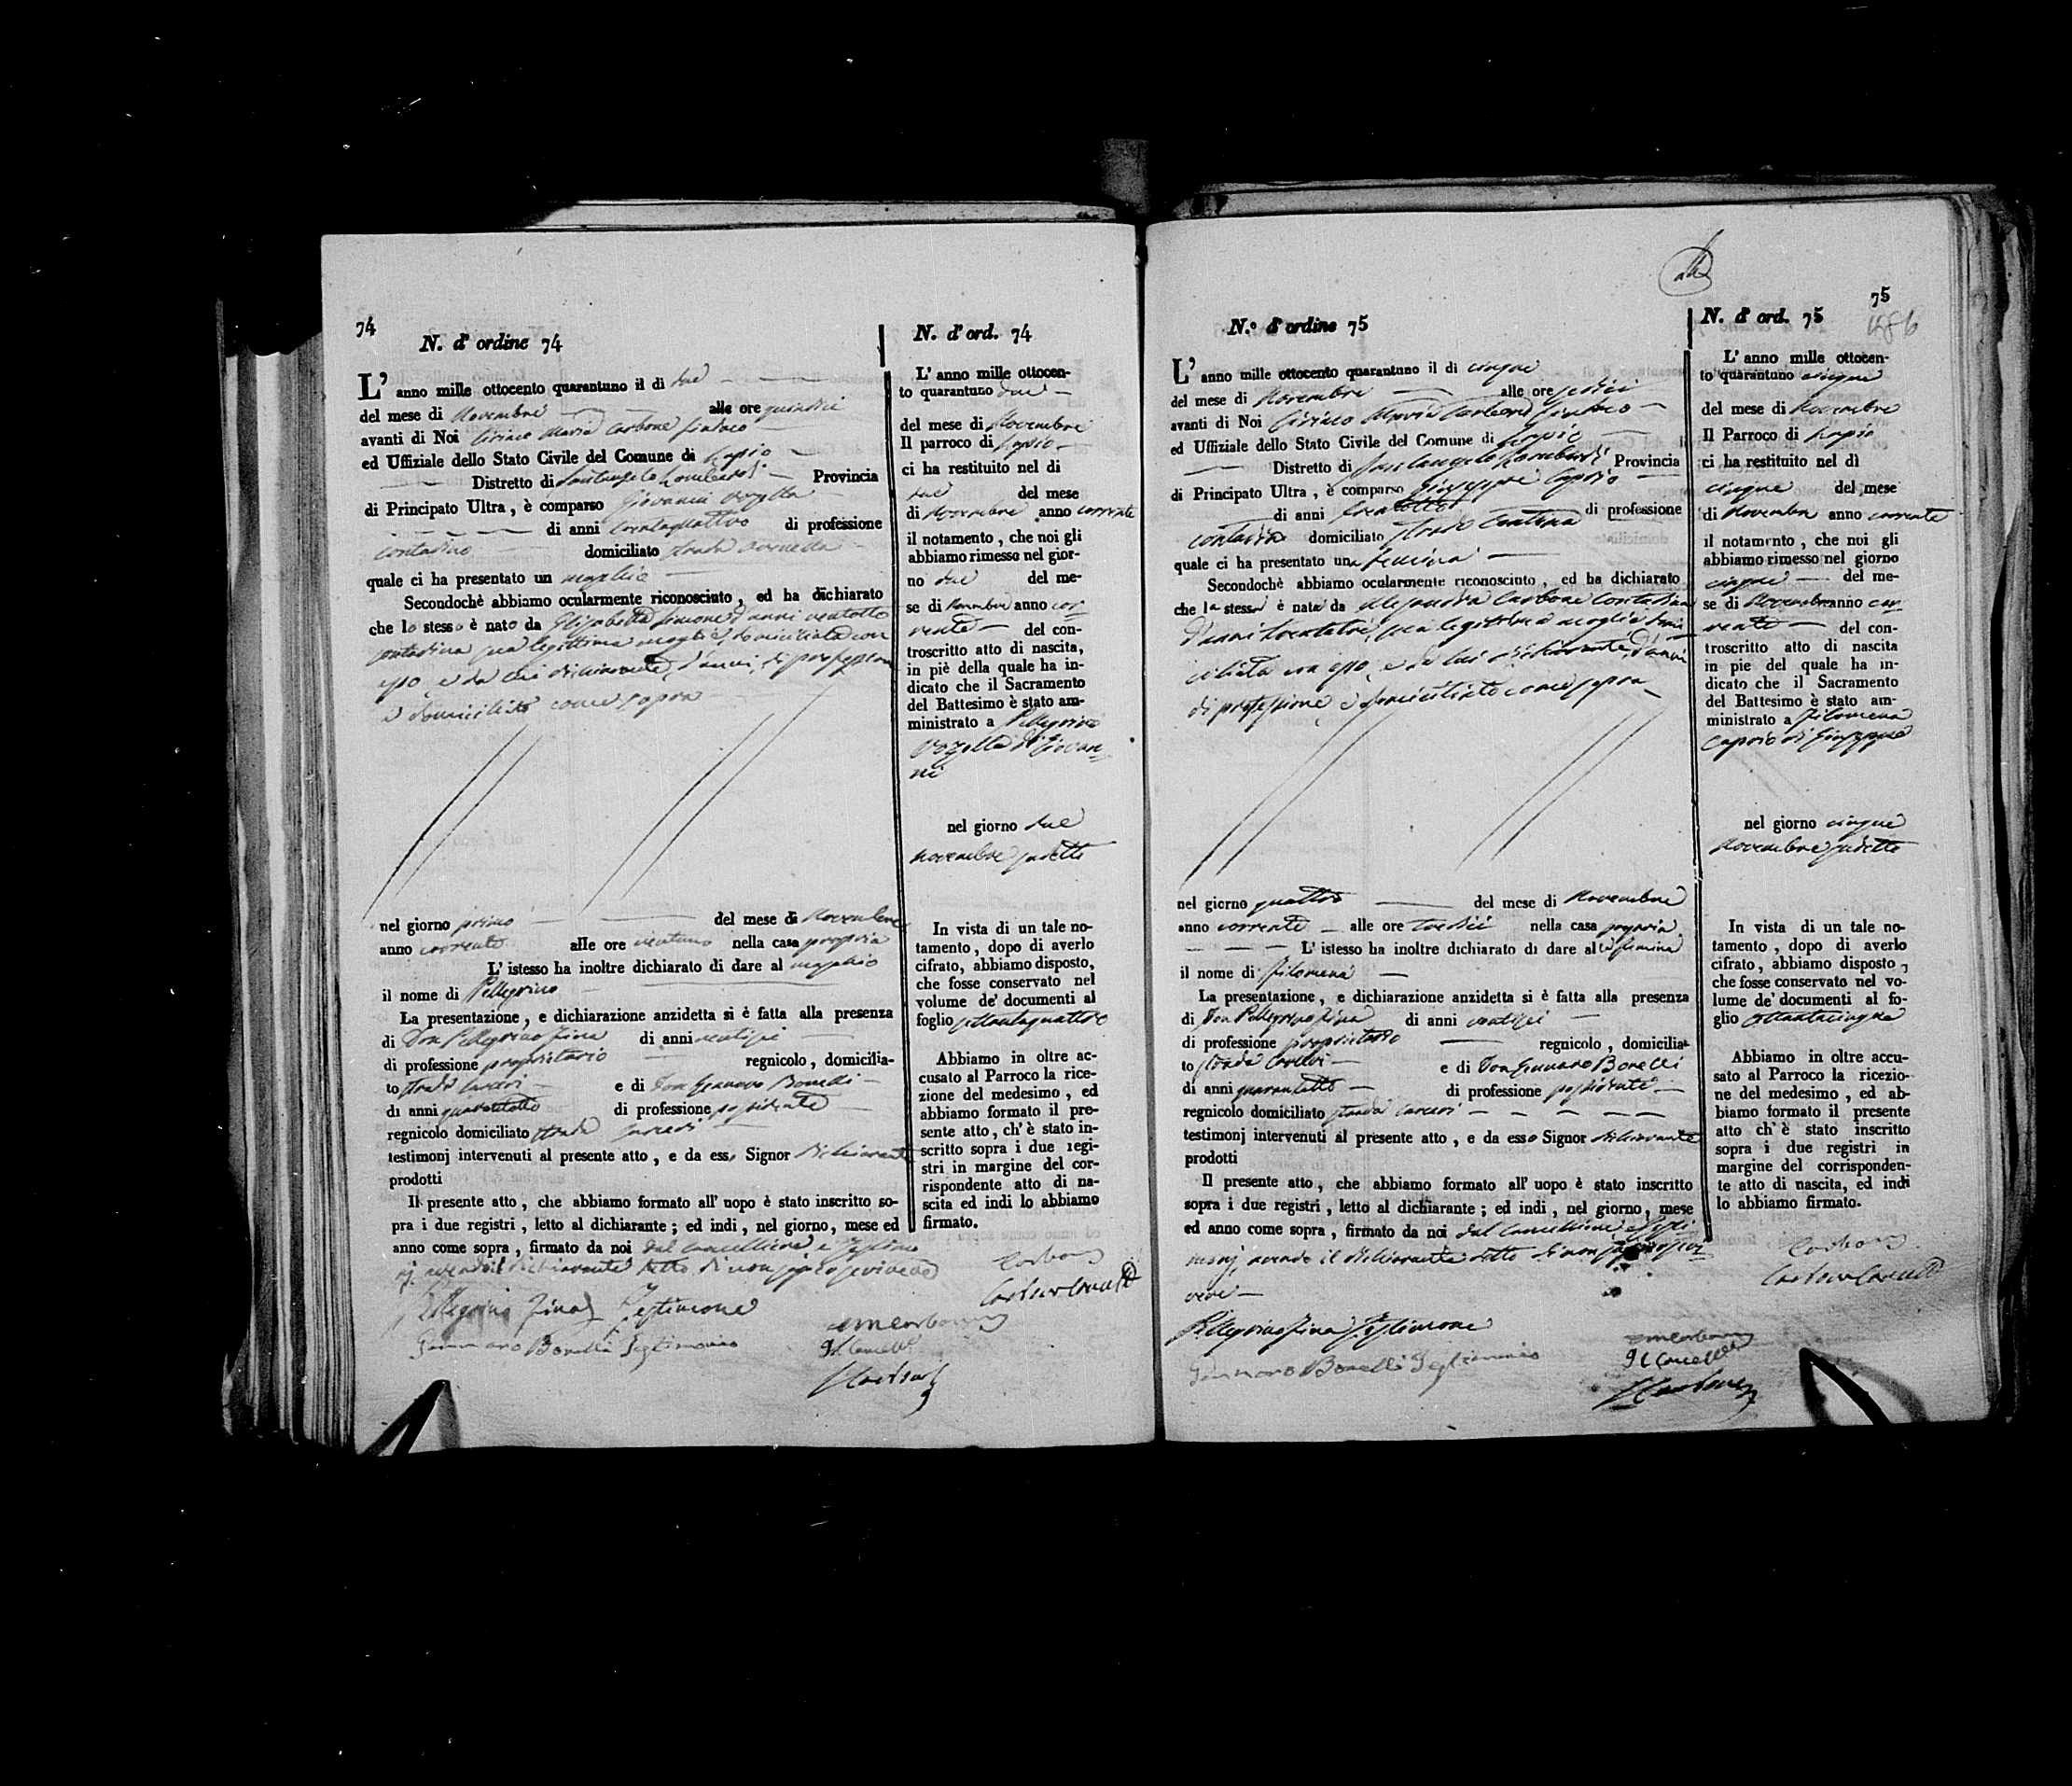 74
N. d' ordine 74
L' anno mille ottocento quarantuno il di due
del mese di Novembre alle ore quindici
avanti di Noi Ciriaco Maria Carbone Sindaco
ed Uffiziale dello Stato Civile del Comune di Lapio
Distretto di Santangelo Lombardi Provincia
di Principato Ultra, è comparso Giovanni
di anni trentaquattro di professione
contadino domiciliato strada
quale ci ha presentato un maschio
Secondochè abbiamo ocularmente riconosciuto, ed ha dichiarato
che lo stesso è nato da Elisabetta d'anni ventotto
contadina sua legittima moglie domiciliata con
esso, e da lui dichiarante, d'anni, di professione
e domiciliato come sopra
nel giorno primo del mese di Novembre
anno corrente alle ore ventuno nella casa propria
L' istesso ha inoltre dichiarato di dare al maschio
il nome di Pellegrino
La presentazione, e dichiarazione anzidetta si è fatta alla presenza
di Don Pellegrino Zina di anni ventisei
di professione proprietario regnicolo, domicilia-
to strada Carceri e di Don Gennaro Bonelli
di anni quarantotto di professione possidente
regnicolo domiciliato strada Carceri
testimonj intervenuti al presente atto, e da esso Signor dichiarante
prodotti
Il presente atto, che abbiamo formato all' uopo è stato inscritto so-
pra i due registri, letto al dichiarante; ed indi, nel giorno, mese ed
anno come sopra, firmato da noi dal Cancelliere e Testimo
nj. avendo il dichiarante detto di non sapere scrivere
Pellegrino Zina Testimone
Gennaro Bonelli Testimonio
Il Cancell
N. d' ord. 74
L' anno mille ottocen-
to quarantuno due
del mese di Novembre
Il parroco di Lapio
ci ha restituito nel di
due del mese
di Novembre anno corrente
il notamento, che noi gli
abbiamo rimesso nel gior-
no due del me-
se di Novembre anno cor-
rente del con-
troscritto atto di nascita,
in piè della quale ha in-
dicato che il Sacramento
del Battesimo è stato am-
ministrato a Pellegrino
di Giovan-
ni
nel giorno due
Novembre sudetto
In vista di un tale no-
tamento, dopo di averlo
cifrato, abbiamo disposto,
che fosse conservato nel
volume de' documenti al
foglio settantaquattro
Abbiamo in oltre ac-
cusato al Parroco la rice-
zione del medesimo, ed
abbiamo formato il pre-
sente atto, ch' è stato in-
scritto sopra i due regi-
stri in margine del cor-
rispondente atto di na-
scita ed indi lo abbiamo
firmato.
Carbone
75
N.º d' ordine 75
L' anno mille ottocento quarantuno il di cinque
del mese di Novembre alle ore sedici
avanti di Noi Ciriaco Maria Carbone Sindaco
ed Uffiziale dello Stato Civile del Comune di Lapio
Distretto di Santangelo Lombardi Provincia
di Principato Ultra, è comparso Giuseppe Caprio
di anni trentotto di professione
contadino domiciliato strada
quale ci ha presentato una femina
Secondochè abbiamo ocularmente riconosciuto, ed ha dichiarato
che la stessa è nata da Alesandra Carbone contadina
d'anni trentatre, sua legittima moglie domi
ciliata con esso, e da lui dichiarante, d'anni
di professione, e domiciliato come sopra
nel giorno quattro del mese di Novembre
anno corrente alle ore tredici nella casa propria
L' istesso ha inoltre dichiarato di dare alla femina
il nome di Filomena
La presentazione, e dichiarazione anzidetta si è fatta alla presenza
di Don Pellegrino Zina di anni ventisei
di professione proprietario regnicolo, domicilia-
to strada Carceri e di Don Gennaro Bonelli
di anni quarantotto di professione possidente
regnicolo domiciliato strada Carceri
testimonj intervenuti al presente atto, e da esso Signor dichiarante
prodotti
Il presente atto, che abbiamo formato all' uopo è stato inscritto
sopra i due registri, letto al dichiarante; ed indi, nel giorno, mese
ed anno come sopra, firmato da noi dal Cancelliere e Testi
monj avendo il dichiarante detto di non sapere scri-
vere
Pellegrino Zina Testimone
Gennaro Bonelli Testimonio
Il Cancelliere
Carbone
N. d' ord. 75
L' anno mille ottocen-
to quarantuno cinque
del mese di Novembre
Il Parroco di Lapio
ci ha restituito nel dì
cinque del mese
di Novembre anno corrente
il notamento, che noi gli
abbiamo rimesso nel giorno
cinque del me-
se di Novembre anno cor-
rente del con-
troscritto atto di nascita
in pie del quale ha in-
dicato che il Sacramento
del Battesimo è stato am-
ministrato a Filomena
Caprio di Giuseppe
nel giorno cinque
Novembre sudetto
In vista di un tale no-
tamento, dopo di averlo
cifrato, abbiamo disposto,
che fosse conservato nel vo-
lume de' documenti al fo-
glio settantacinque
Abbiamo in oltre accu-
sato al Parroco la ricezio-
ne del medesimo, ed ab-
biamo formato il presente
atto ch' è stato inscritto
sopra i due registri in
margine del corrisponden-
te atto di nascita, ed indi
lo abbiamo firmato.
Carbone